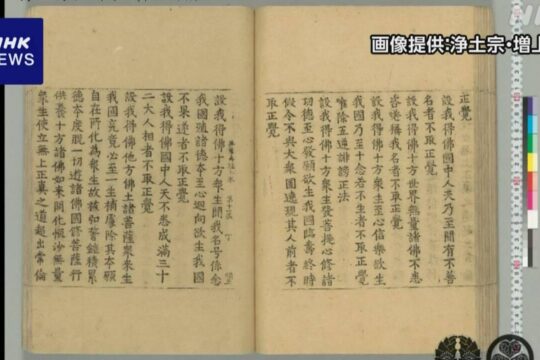 NHK
NEWS
画像提供:浄土宗・増上
正覺
設我得佛國中人天乃至聞有不善
名者不取正覺
設我得佛十方世界無量諸佛不悉
咨嗟稱我名者不取正覺
設我得佛十方衆生至心信樂欲生
我國乃至十念若不生者不取正覺
唯除五逆誹謗正法
設我得佛十方衆生發菩提心修諸
功德至心發願欲生我國臨壽終時
假令不與大衆圍遶現其人前者不
取正覺
設我得佛十方衆生聞我名号係念
我國殖諸德本至心迴向欲生我國
不果遂者不取正覺
設我得佛國中人天不悉成滿三十
二大人相者不取正覺
設我得佛他方佛土諸菩薩衆來生
我國究竟必至一生補處除其本願
自在所化爲衆生故被弘誓鎧積累
德本度脱一切遊諸佛國修菩薩行
供養十方諸佛如來開化恒沙無量
衆生使立無上正真之道超出常倫